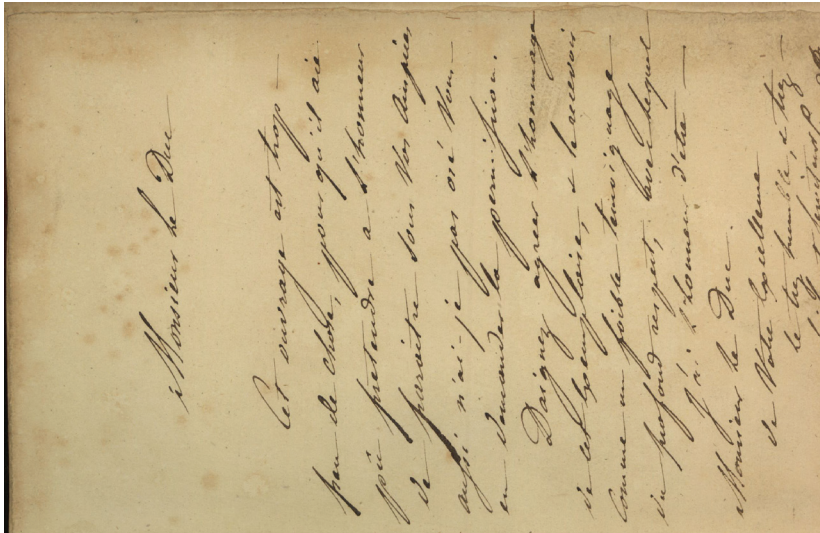 Monsieur le Duc
Cet ouvrage est trop —
peu de chose, pour qu'il aie
pû pretendre a l'honneur
de paraitre sous Vos auspices,
aussi n'ai-je pas osé Vous —
en demander la permission.
Daignez agréer l'hommage
de cet exemplaire, & le recevoir
comme un foible temoignage
du profond respect, avec lequel
J'ai l'honneur d'etre —
Monsieur le Duc.
de Votre Excellence
le trez humble, & trez —